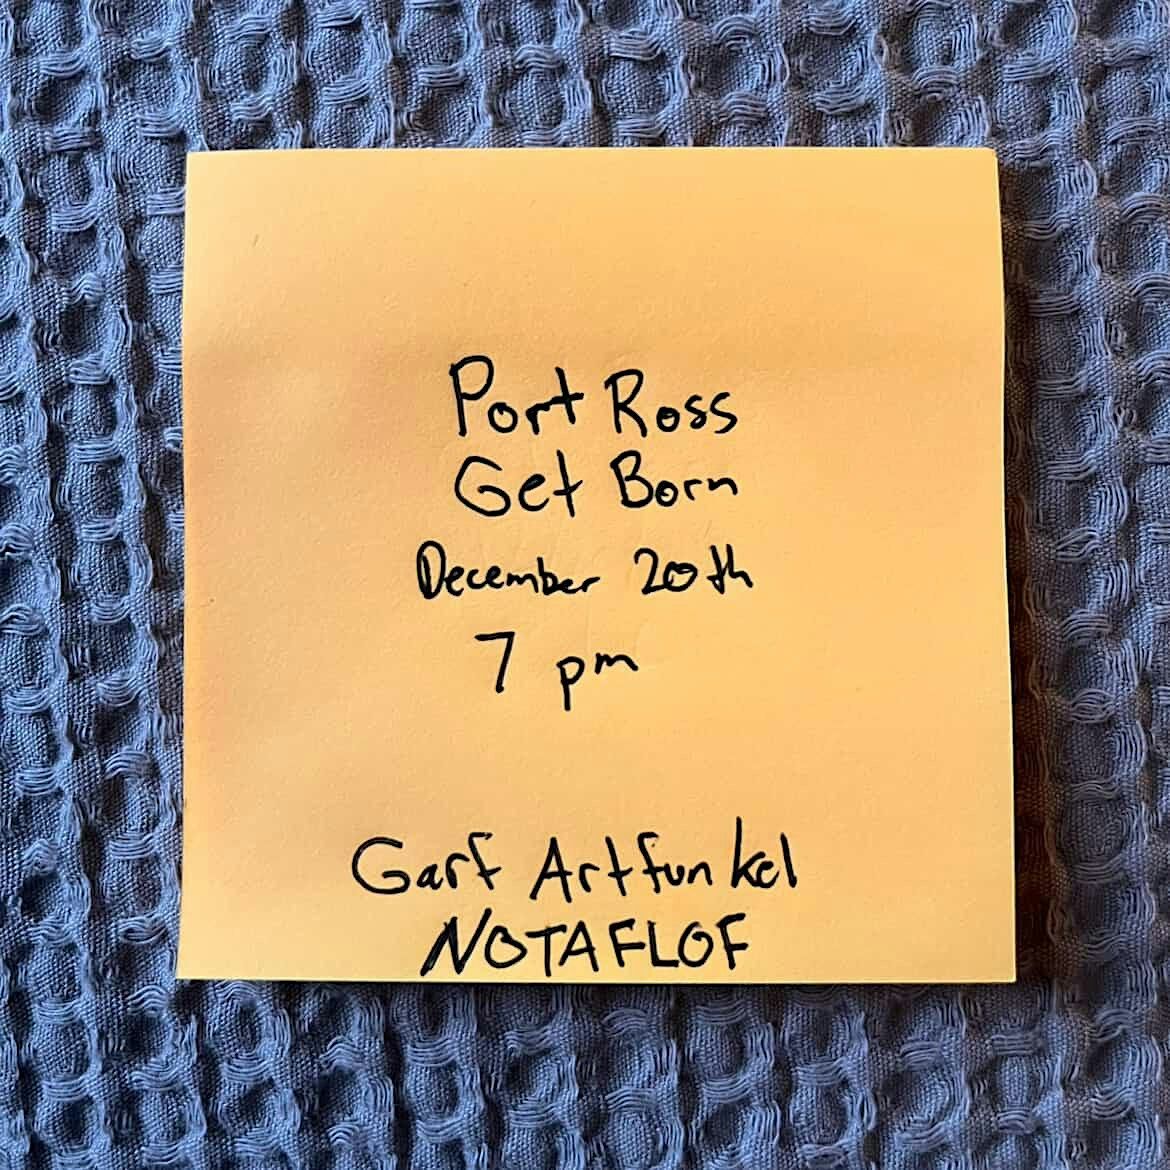 Port Ross
Get Born
December 20th
7 pm
Garf Artfunkel
NOTAFLOF